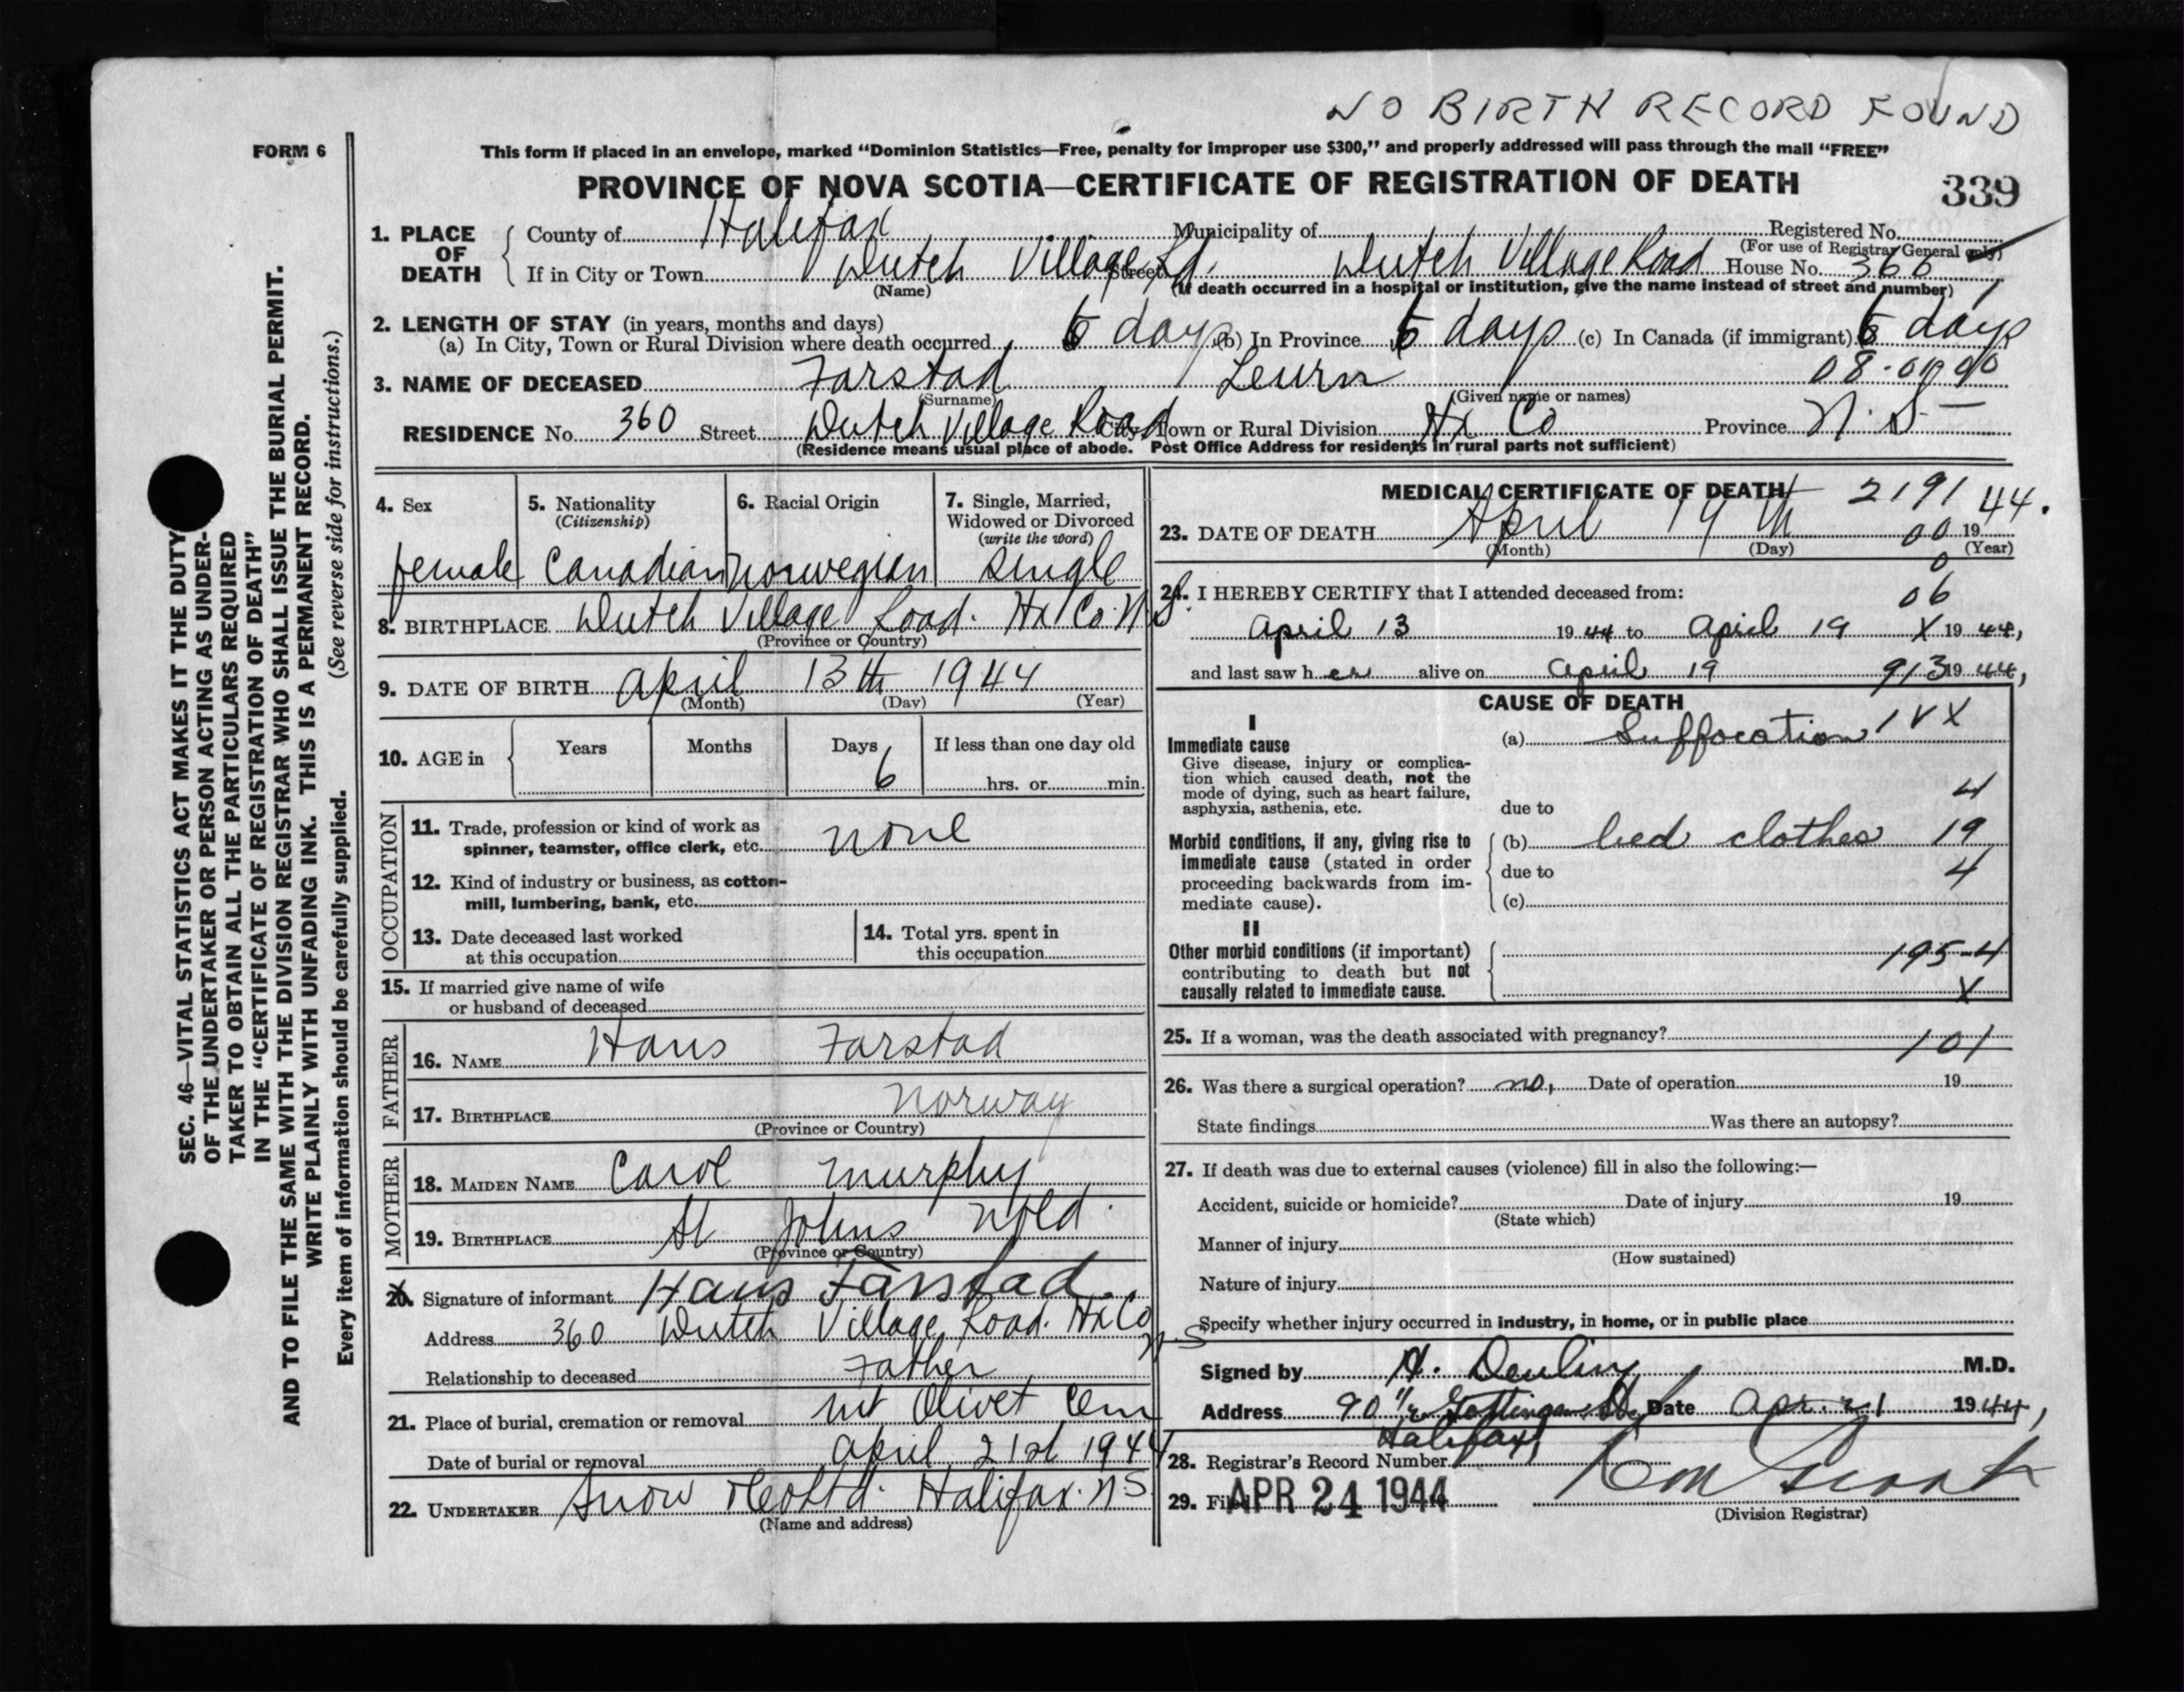 NO BIRTH RECORD FOUND
FORM 6
This form if placed in an envelope, marked “Dominion Statistics—Free, penalty for improper use $300,” and properly addressed will pass through the mail “FREE”
PROVINCE OF NOVA SCOTIA—CERTIFICATE OF REGISTRATION OF DEATH
339
1. PLACE OF DEATH
County of Halifax Municipality of Registered No.
(For use of Registrar General only)
If in City or Town Dutch Village Rd. Street Dutch Village Road House No. 360
(Name) (If death occurred in a hospital or institution, give the name instead of street and number)
2. LENGTH OF STAY (in years, months and days)
(a) In City, Town or Rural Division where death occurred 6 days (b) In Province 6 days (c) In Canada (if immigrant) 6 days
3. NAME OF DECEASED Farstad
(Surname) (Given name or names)
RESIDENCE No. 360 Street Dutch Village Road City, Town or Rural Division Hx Co Province N.S.
(Residence means usual place of abode. Post Office Address for residents in rural parts not sufficient)
4. Sex
female
5. Nationality
(Citizenship)
Canadian
6. Racial Origin
Norwegian
7. Single, Married,
Widowed or Divorced
(write the word)
single
8. BIRTHPLACE Dutch Village Road. Hx Co. N.S.
(Province or Country)
9. DATE OF BIRTH April 13th 1944
(Month) (Day) (Year)
10. AGE in Years Months Days 6 If less than one day old
hrs. or min.
OCCUPATION
11. Trade, profession or kind of work as
spinner, teamster, office clerk, etc. none
12. Kind of industry or business, as cotton-
mill, lumbering, bank, etc.
13. Date deceased last worked
at this occupation
14. Total yrs. spent in
this occupation
15. If married give name of wife
or husband of deceased
FATHER
16. NAME Hans Farstad
17. BIRTHPLACE Norway
(Province or Country)
MOTHER
18. MAIDEN NAME Carol Murphy
19. BIRTHPLACE St Johns Nfld.
(Province or Country)
20. Signature of informant Hans Farstad
Address 360 Dutch Village Road. Hx Co
N.S
Relationship to deceased Father
21. Place of burial, cremation or removal Mt Olivet Cem
Date of burial or removal April 21st 1944
22. UNDERTAKER Snow & Co Ltd. Halifax. N S
(Name and address)
MEDICAL CERTIFICATE OF DEATH 2191
23. DATE OF DEATH April 19th 00 19 44.
(Month) (Day) (Year)
24. I HEREBY CERTIFY that I attended deceased from: 06
April 13 1944 to April 19 X 1944,
and last saw her alive on April 19 913 1944,
CAUSE OF DEATH
I
Immediate cause
Give disease, injury or complica-
tion which caused death, not the
mode of dying, such as heart failure,
asphyxia, asthenia, etc.
(a) Suffocation
due to 4
Morbid conditions, if any, giving rise to
immediate cause (stated in order
proceeding backwards from im-
mediate cause).
(b) bed clothes 19
due to 4
(c)
II
Other morbid conditions (if important)
contributing to death but not
causally related to immediate cause.
195-4
X
25. If a woman, was the death associated with pregnancy? 101
26. Was there a surgical operation? no, Date of operation 19
State findings Was there an autopsy?
27. If death was due to external causes (violence) fill in also the following:—
Accident, suicide or homicide? Date of injury 19
(State which)
Manner of injury
(How sustained)
Nature of injury
Specify whether injury occurred in industry, in home, or in public place
Signed by H. M.D.
Address 90 1/2 Gottingen St. Date Apr. 21 1944,
Halifax
28. Registrar's Record Number
29. Filed APR 24 1944
(Division Registrar)
SEC. 46—VITAL STATISTICS ACT MAKES IT THE DUTY
OF THE UNDERTAKER OR PERSON ACTING AS UNDER-
TAKER TO OBTAIN ALL THE PARTICULARS REQUIRED
IN THE “CERTIFICATE OF REGISTRATION OF DEATH”
AND TO FILE THE SAME WITH THE DIVISION REGISTRAR WHO SHALL ISSUE THE BURIAL PERMIT.
WRITE PLAINLY WITH UNFADING INK. THIS IS A PERMANENT RECORD.
Every item of information should be carefully supplied. (See reverse side for instructions.)